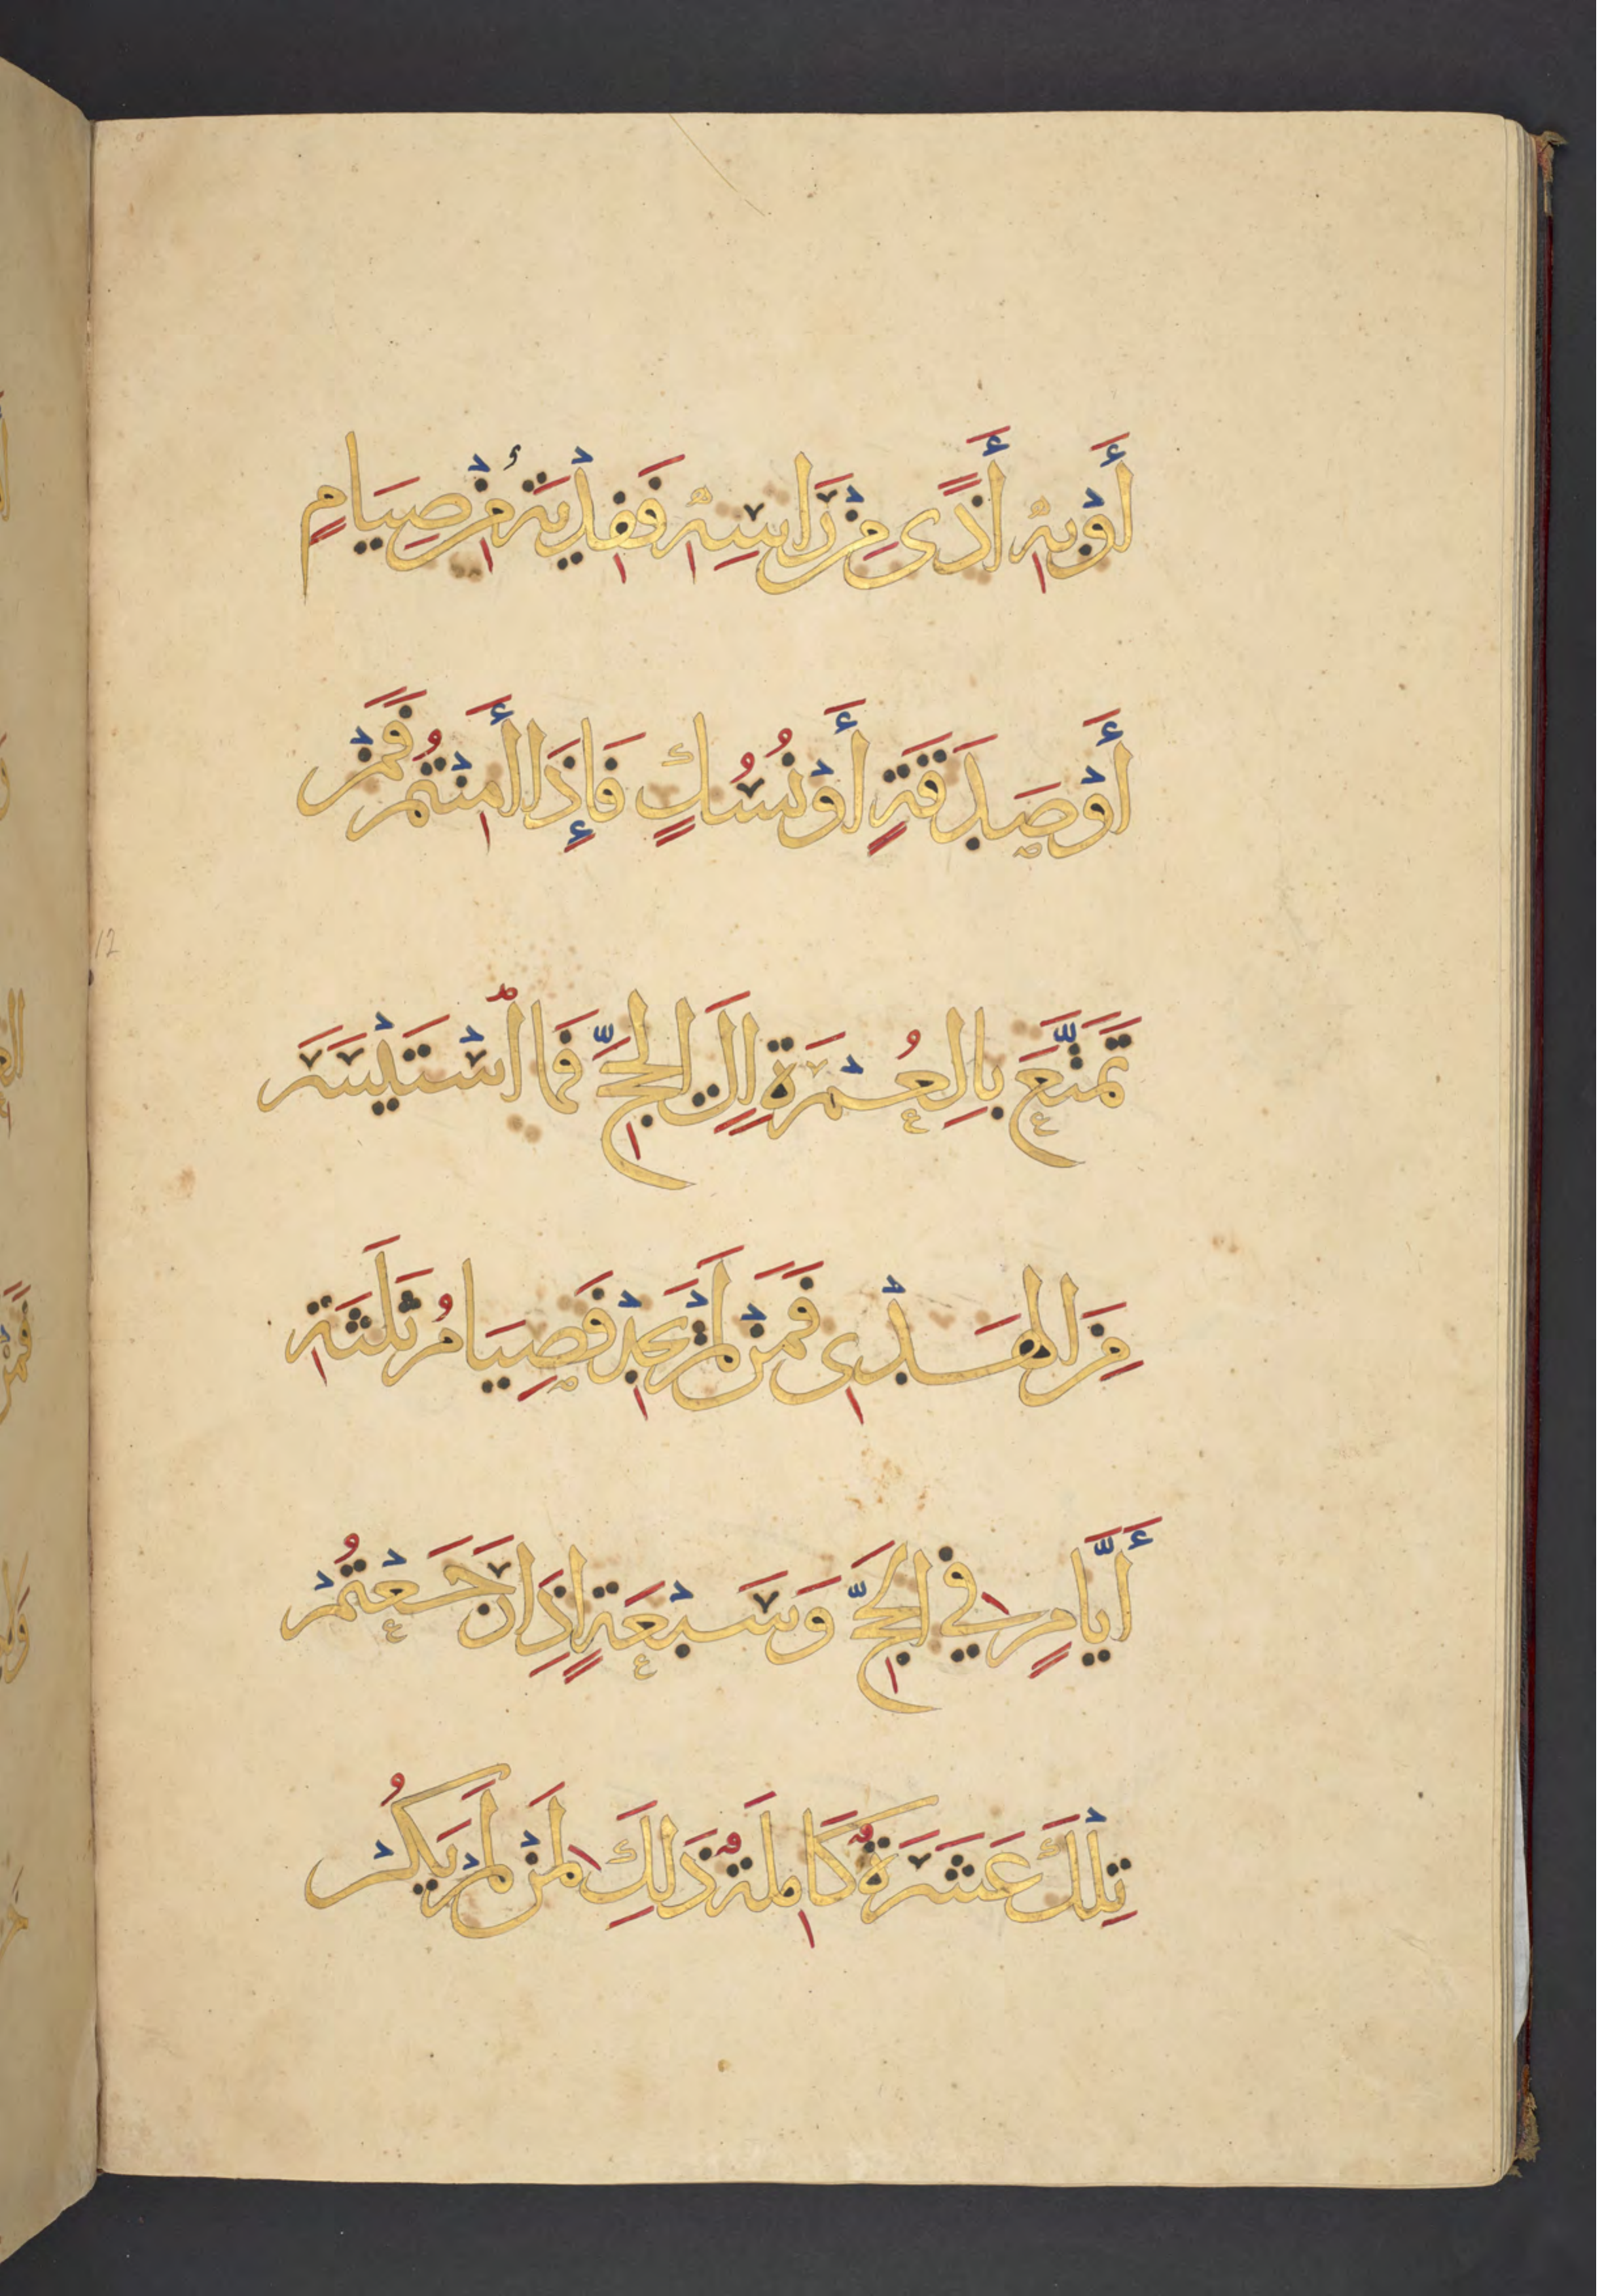 أَوْ بِهِ أَذًى مِنْ رَاسِهِ فَفِدْيَةٌ مِنْ صِيَامٍ
أَوْ صَدَقَةٍ أَوْ نُسُكٍ فَإِذَا أَمِنْتُمْ فَمَنْ
تَمَتَّعَ بِالْعُمْرَةِ إِلَى الْحَجِّ فَمَا اسْتَيْسَرَ
مِنَ الْهَدْىِ فَمَنْ لَمْ يَجِدْ فَصِيَامُ ثَلَثَةِ
أَيَّامٍ فِي الْحَجِّ وَسَبْعَةٍ إِذَا رَجَعْتُمْ
تِلْكَ عَشَرَةٌ كَامِلَةٌ ذَلِكَ لِمَنْ لَمْ يَكُنْ
12